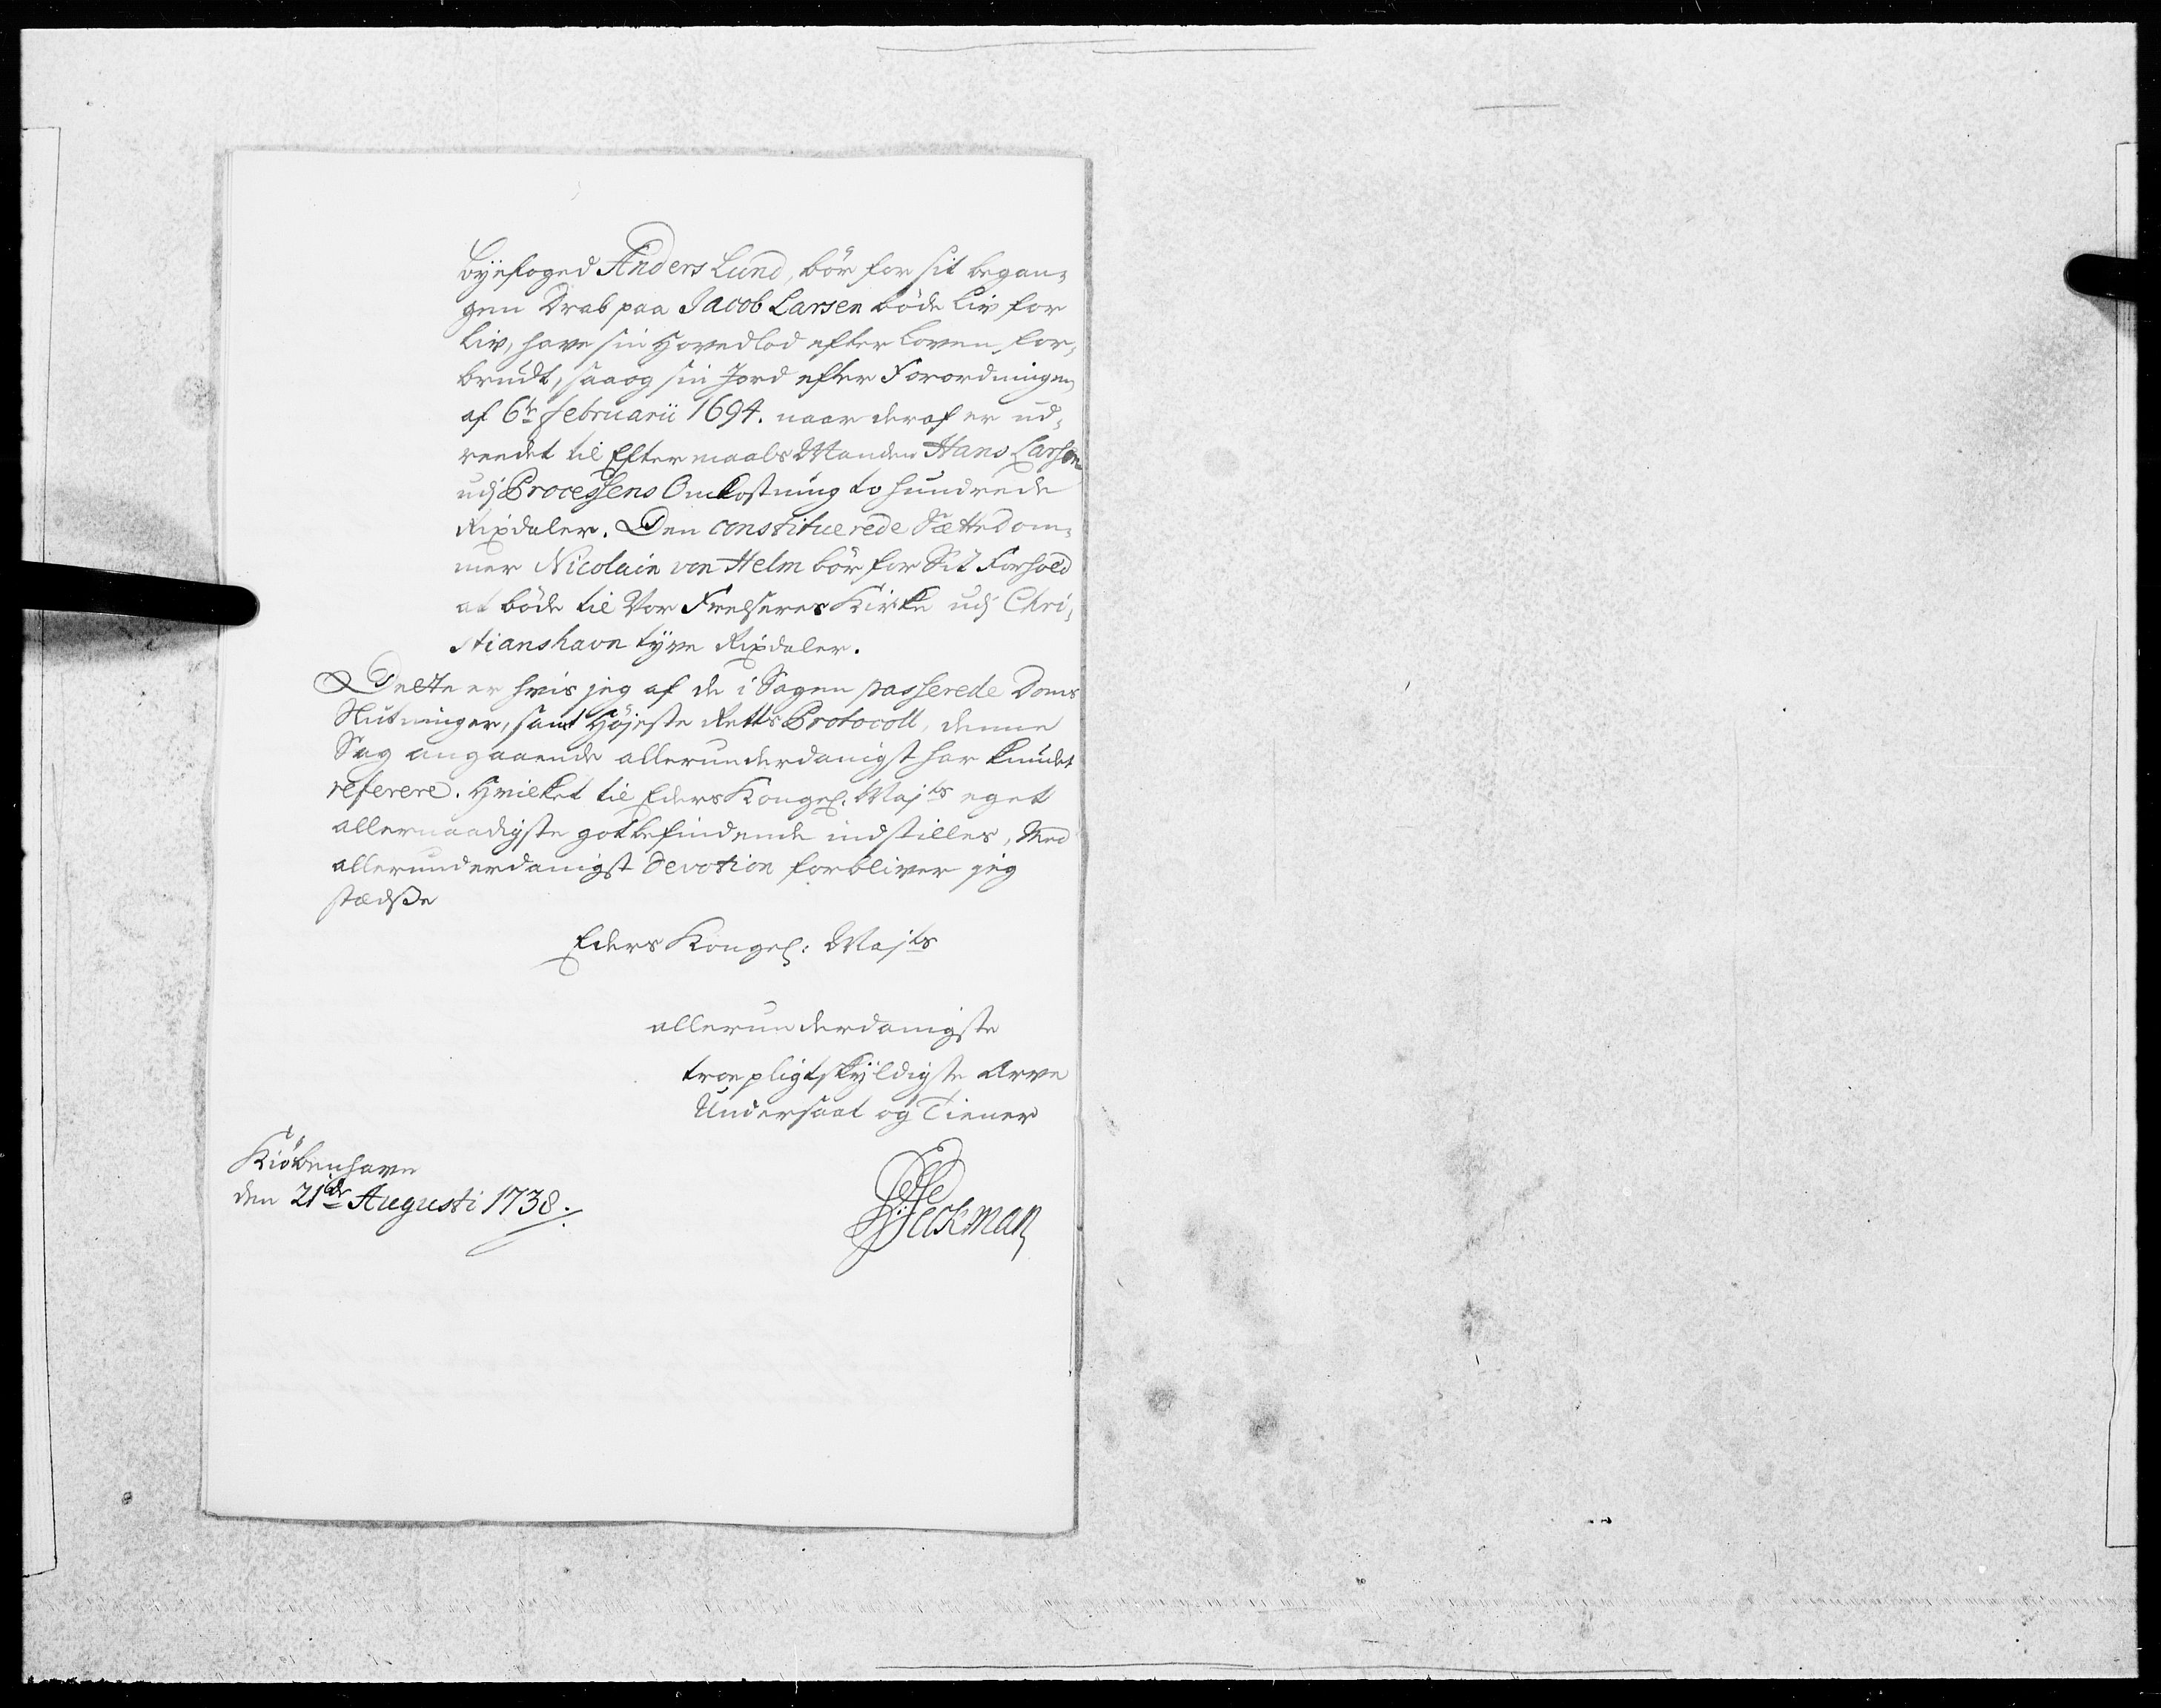 byefoged Anders Lund, bör for sit began-
gen Drab paa Jacob Larsen böde Liv for
Liv, have sin Hovedlod efter Loven for-
brudt, saa og sin Jord efter Forordningen
af 6te februarii 1694. naar deraf er ud-
reedet til Eftermaals Manden Hans Larsen
udj Processens Omkostning to hundrede
Rixdaler. Den constituerede Sættedom-
mer Nicolain von Helm bör for Sit Forhold
at böde til Vor Frelseres Kirke udj Chri-
stianshavn tyve Rixdaler.
Dette er hvis jeg af de i Sagen passerede Doms
Slutninger, samt Höjeste Retts Protocoll, denne
Sag angaaende allerunderdanigst har kundet
referere. Hvilket til Eders Kongel. Majts eget
allernaadigste gotbefindende indstilles, Med
allerunderdanigst Devotion forbliver jeg
stædse
Eders Kongel: Majts
allerunderdanigste
troe pligtskyldigste Arve
Undersaat og Tiener
Kiöbenhavn
den 21de Augusti 1738.
Seckman